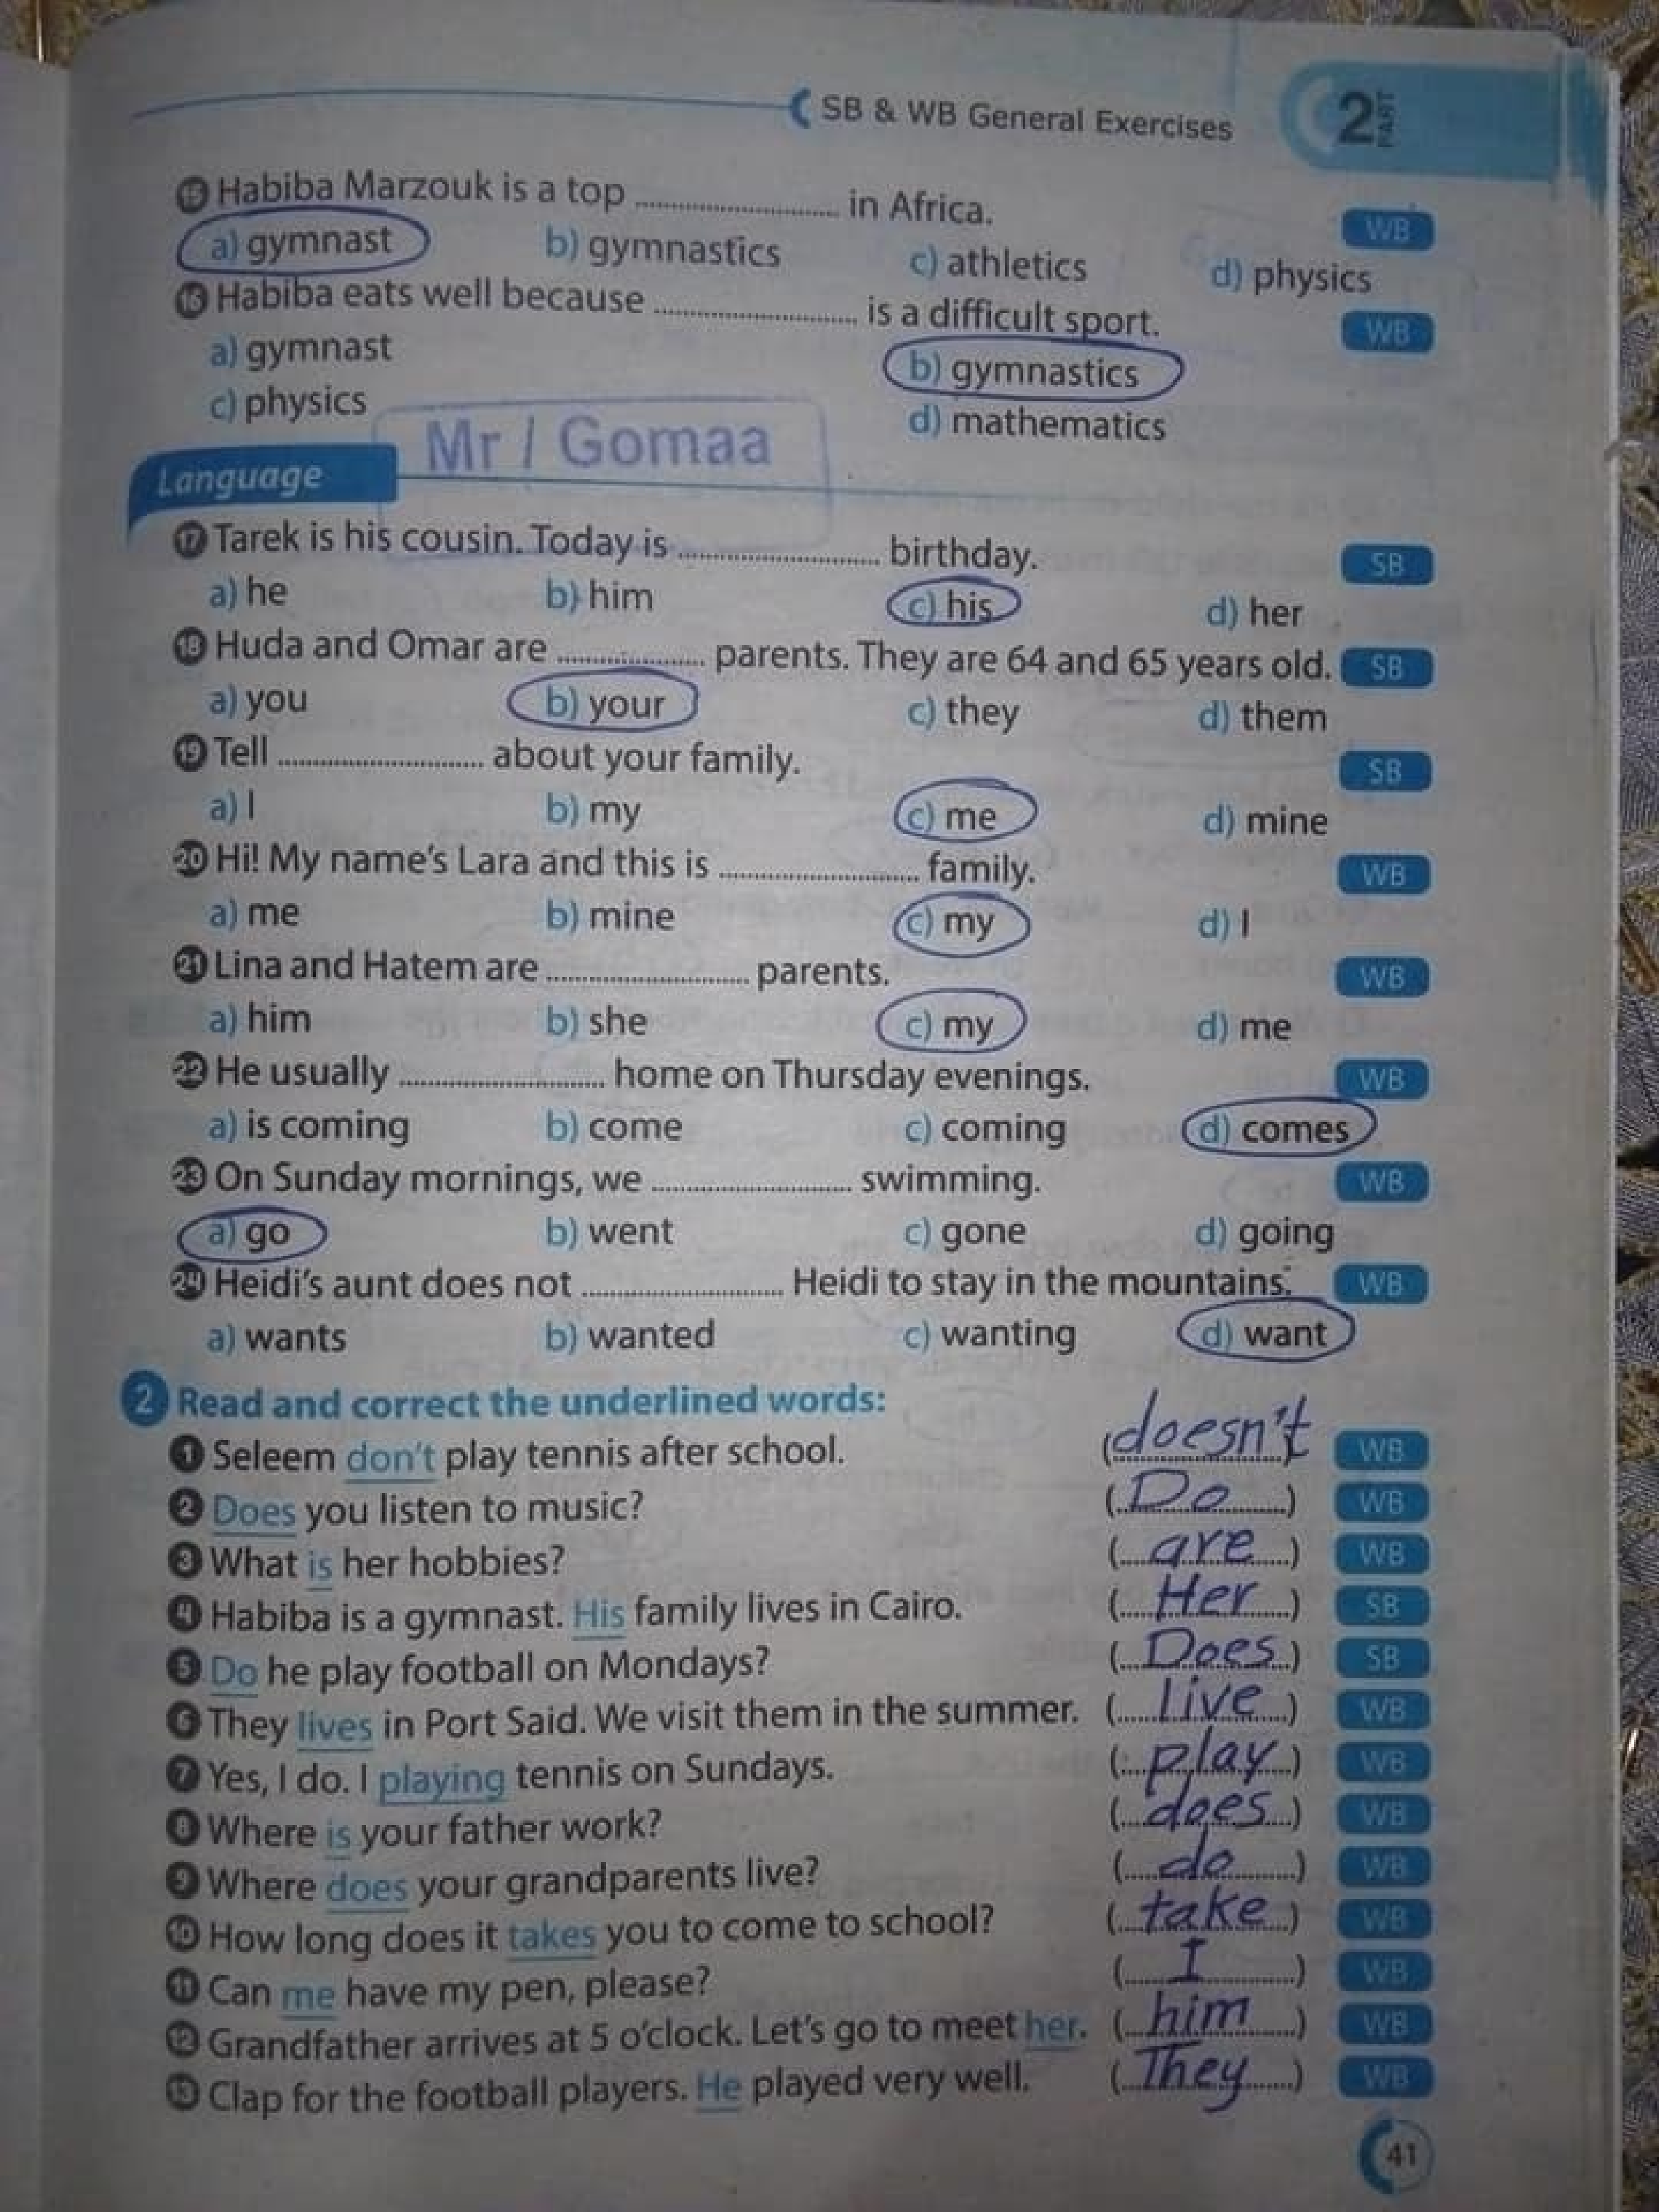 SB & WB General Exercises
2 PART
15 Habiba Marzouk is a top .................... in Africa. WB
a) gymnast b) gymnastics c) athletics d) physics
16 Habiba eats well because .................... is a difficult sport. WB
a) gymnast b) gymnastics
c) physics d) mathematics
Mr / Gomaa
Language
17 Tarek is his cousin. Today is .................... birthday. SB
a) he b) him c) his d) her
18 Huda and Omar are .................... parents. They are 64 and 65 years old. SB
a) you b) your c) they d) them
19 Tell .................... about your family. SB
a) I b) my c) me d) mine
20 Hi! My name's Lara and this is .................... family. WB
a) me b) mine c) my d) I
21 Lina and Hatem are .................... parents. WB
a) him b) she c) my d) me
22 He usually .................... home on Thursday evenings. WB
a) is coming b) come c) coming d) comes
23 On Sunday mornings, we .................... swimming. WB
a) go b) went c) gone d) going
24 Heidi's aunt does not .................... Heidi to stay in the mountains. WB
a) wants b) wanted c) wanting d) want
2 Read and correct the underlined words:
1 Seleem don't play tennis after school. (doesn't) WB
2 Does you listen to music? (Do) WB
3 What is her hobbies? (are) WB
4 Habiba is a gymnast. His family lives in Cairo. (Her) SB
5 Do he play football on Mondays? (Does) SB
6 They lives in Port Said. We visit them in the summer. (live) WB
7 Yes, I do. I playing tennis on Sundays. (play) WB
8 Where is your father work? (does) WB
9 Where does your grandparents live? (do) WB
10 How long does it takes you to come to school? (take) WB
11 Can me have my pen, please? (I) WB
12 Grandfather arrives at 5 o'clock. Let's go to meet her. (him) WB
13 Clap for the football players. He played very well. (They) WB
41